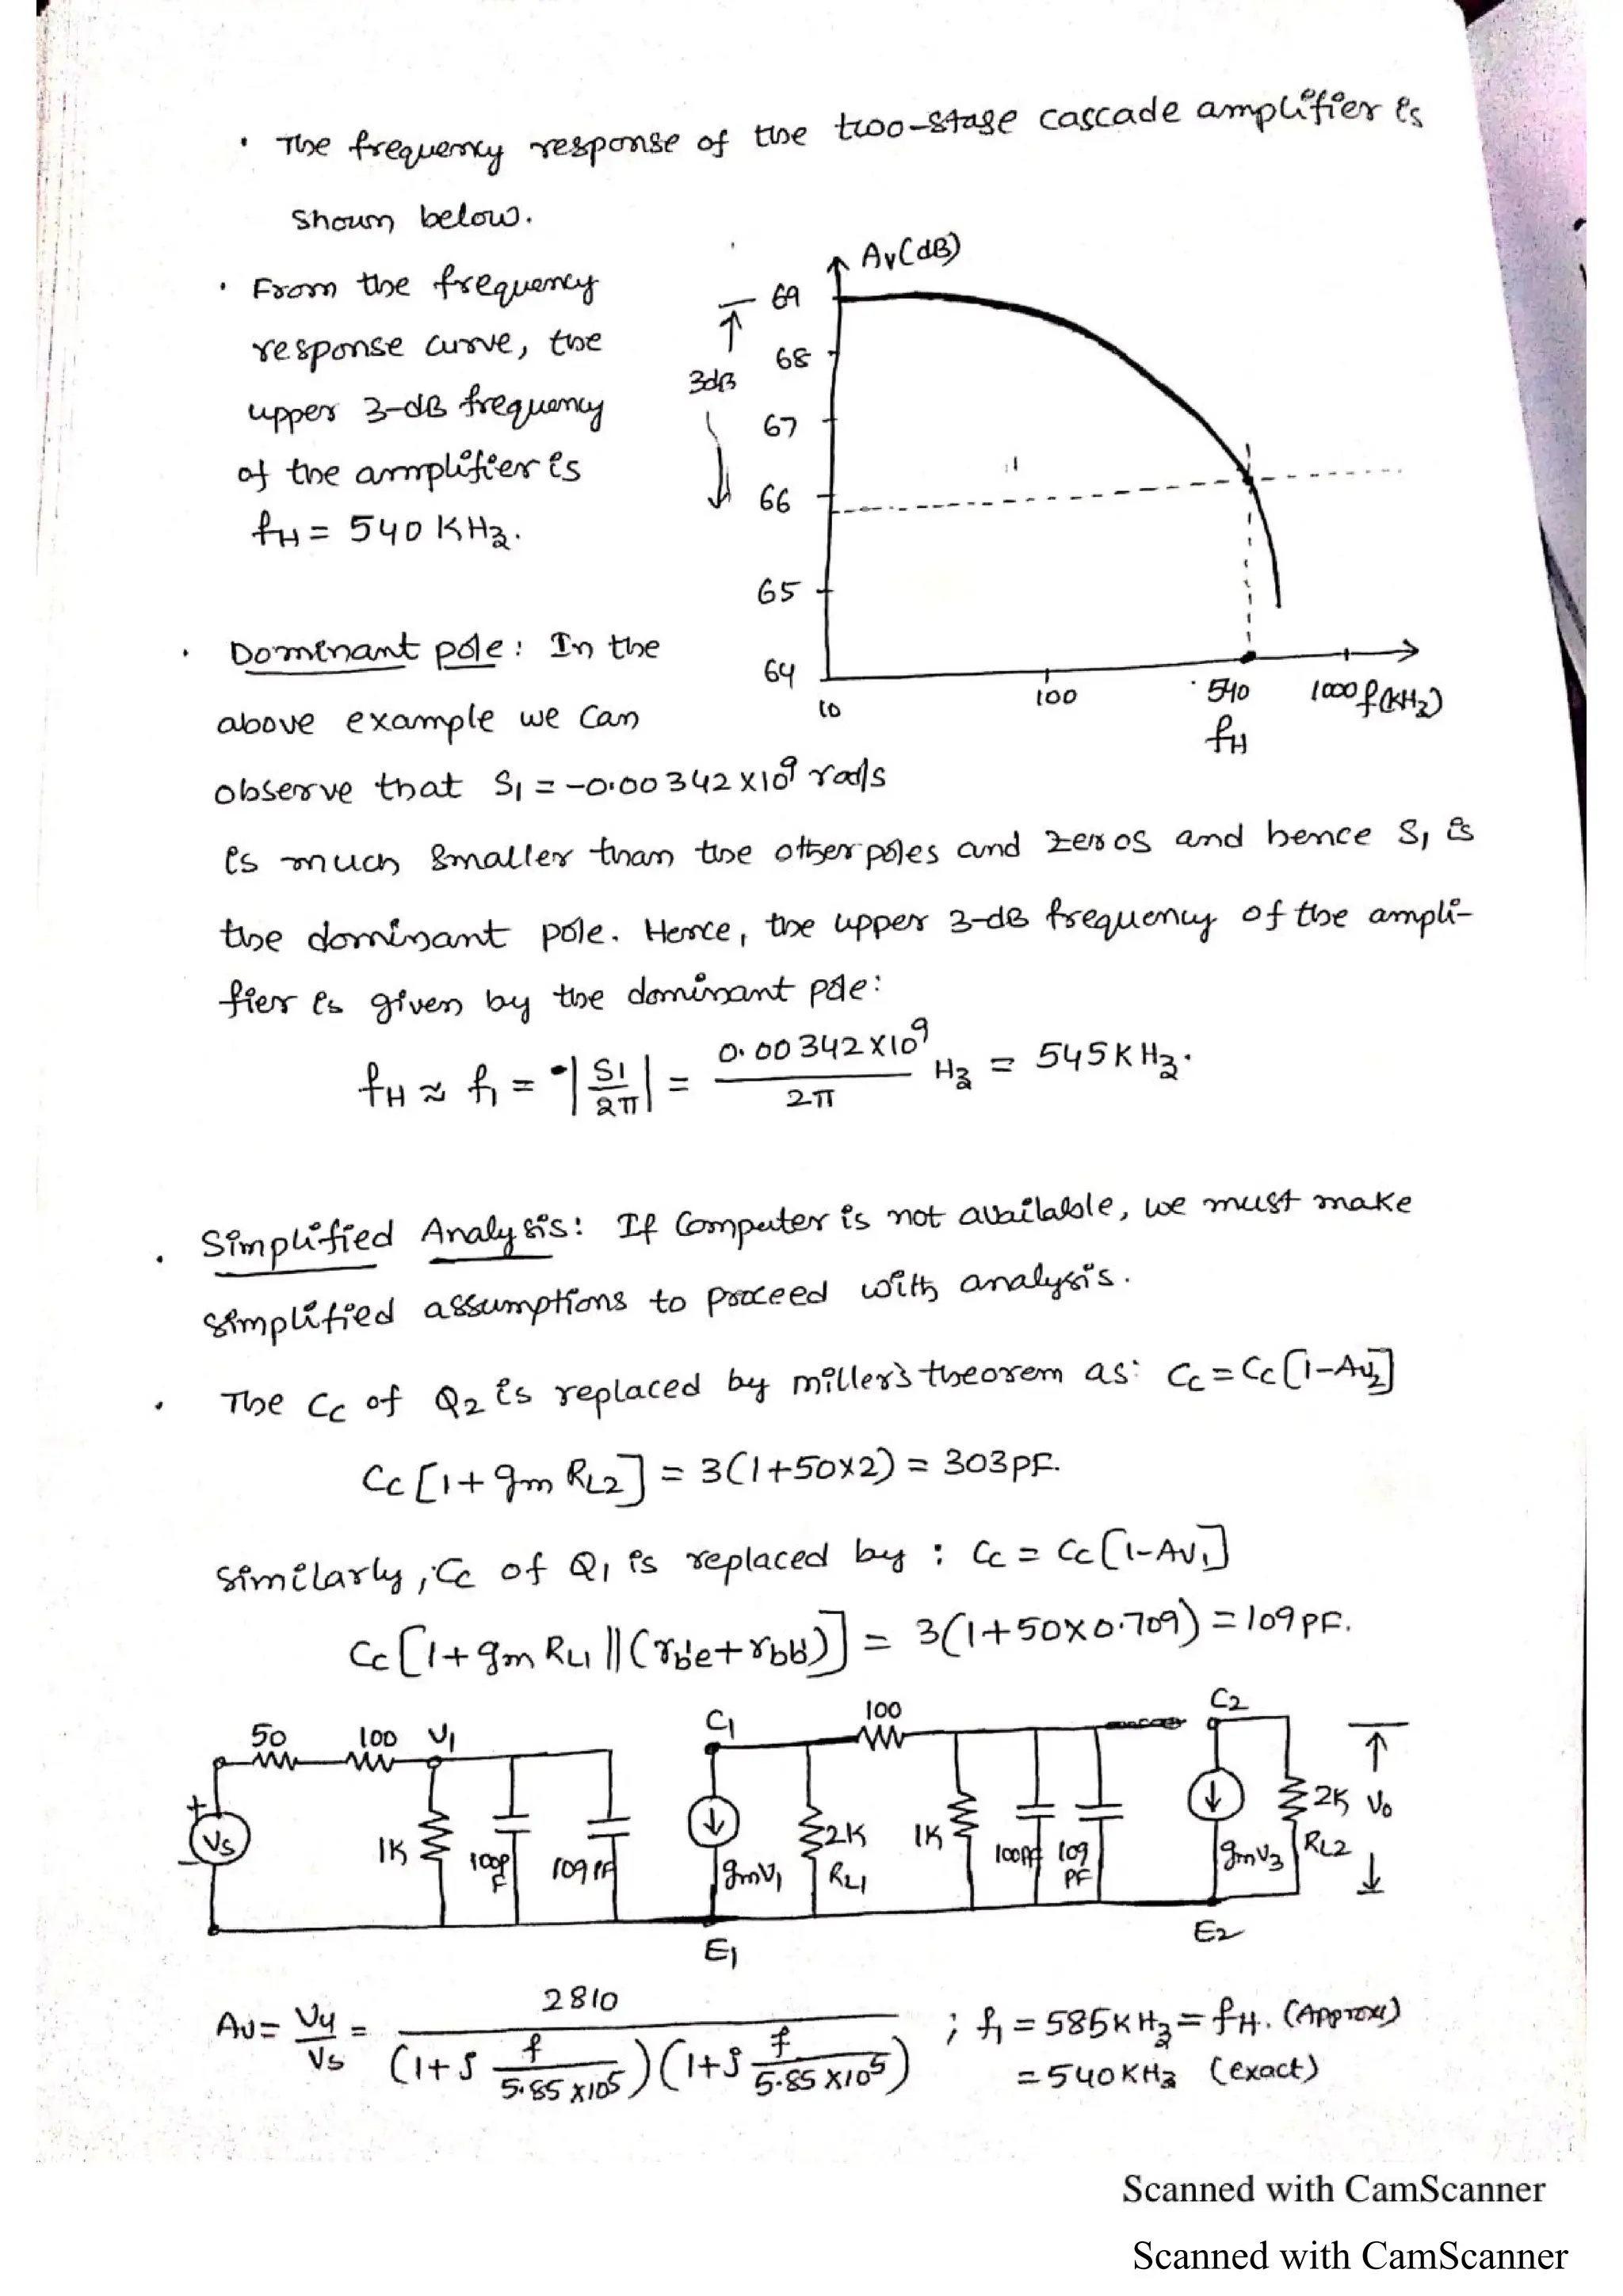 · The frequency response of the two-stage cascade amplifier is
shown below.
· From the frequency
response curve, the
upper 3-dB frequency
of the amplifier is
fH = 540 KHz.
Av(dB)
69
68
3dB
67
66
65
64
10
100
540
1000 f(KHz)
fH
· Dominant pole: In the
above example we can
observe that S1 = -0.00342 x10^9 rad/s
is much smaller than the other poles and zeros and hence S1 is
the dominant pole. Hence, the upper 3-dB frequency of the ampli-
fier is given by the dominant pole:
fH ≈ f1 = -|S1/2π| = 0.00342 x10^9/2π Hz = 545 KHz.
· Simplified Analysis: If Computer is not available, we must make
simplified assumptions to proceed with analysis.
· The Cc of Q2 is replaced by miller's theorem as: Cc = Cc[1-Av2]
Cc[1+gm RL2] = 3(1+50x2) = 303PF.
Similarly, Cc of Q1 is replaced by : Cc = Cc[1-Av1]
Cc[1+gm RL1 || (rb'e+rbb')] = 3(1+50x0.709) = 109PF.
50
100
V1
C1
100
C2
+
Vs
-
1K
100PF
109PF
gmV1
2K
RL1
1K
100PF
109PF
gmV3
2K
RL2
Vo
E1
E2
Av = V4/Vs = 2810/(1+j f/5.85x10^5)(1+j f/5.85x10^5) ; f1 = 585KHz = fH. (Approx)
= 540KHz (exact)
Scanned with CamScanner
Scanned with CamScanner